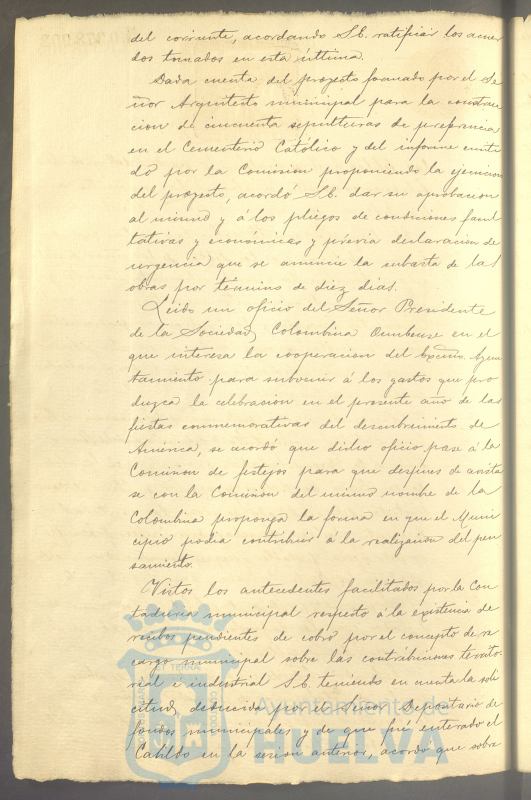 del corriente, acordando S.E. ratificar los acuer
dos tomados en esta última.
Dada cuenta del proyecto formado por el Se
ñor Arquitecto municipal para la construc
cion de cincuenta sepulturas de preferencia
en el Cementerio Católico y del informe emiti
do por la Comision proponiendo la ejecucion
del proyecto, acordó S.E. dar su aprobacion
al mismo y á los pliegos de condiciones facul
tativas y económicas y prévia declaracion de
urgencia que se anuncie la subasta de las
obras por término de diez dias.
Leido un oficio del Señor Presidente
de la Sociedad Colombina Onubense en el
que interesa la cooperacion del Excmo. Ayun
tamiento para subvenir á los gastos que pro
duzca la celebracion en el presente año de las
fiestas conmemorativas del descubrimiento de
América, se acordó que dicho oficio pase á la
Comision de festejos para que despues de avista
se con la Comision del mismo nombre de la
Colombina proponga la forma en que el Muni
cipio podia contribuir á la realizacion del pen
samiento.
Vistos los antecedentes facilitados por la Con
taduria municipal respecto á la existencia de
recibos pendientes de cobro por el concepto de re
cargo municipal sobre las contribuciones territo
rial é industrial S.E. teniendo en cuenta la soli
citud deducida por el Señor Depositario de
fondos municipales y de que fué enterado el
Cabildo en la sesion anterior, acordó que sobre
Ayuntamiento de
HUELVA